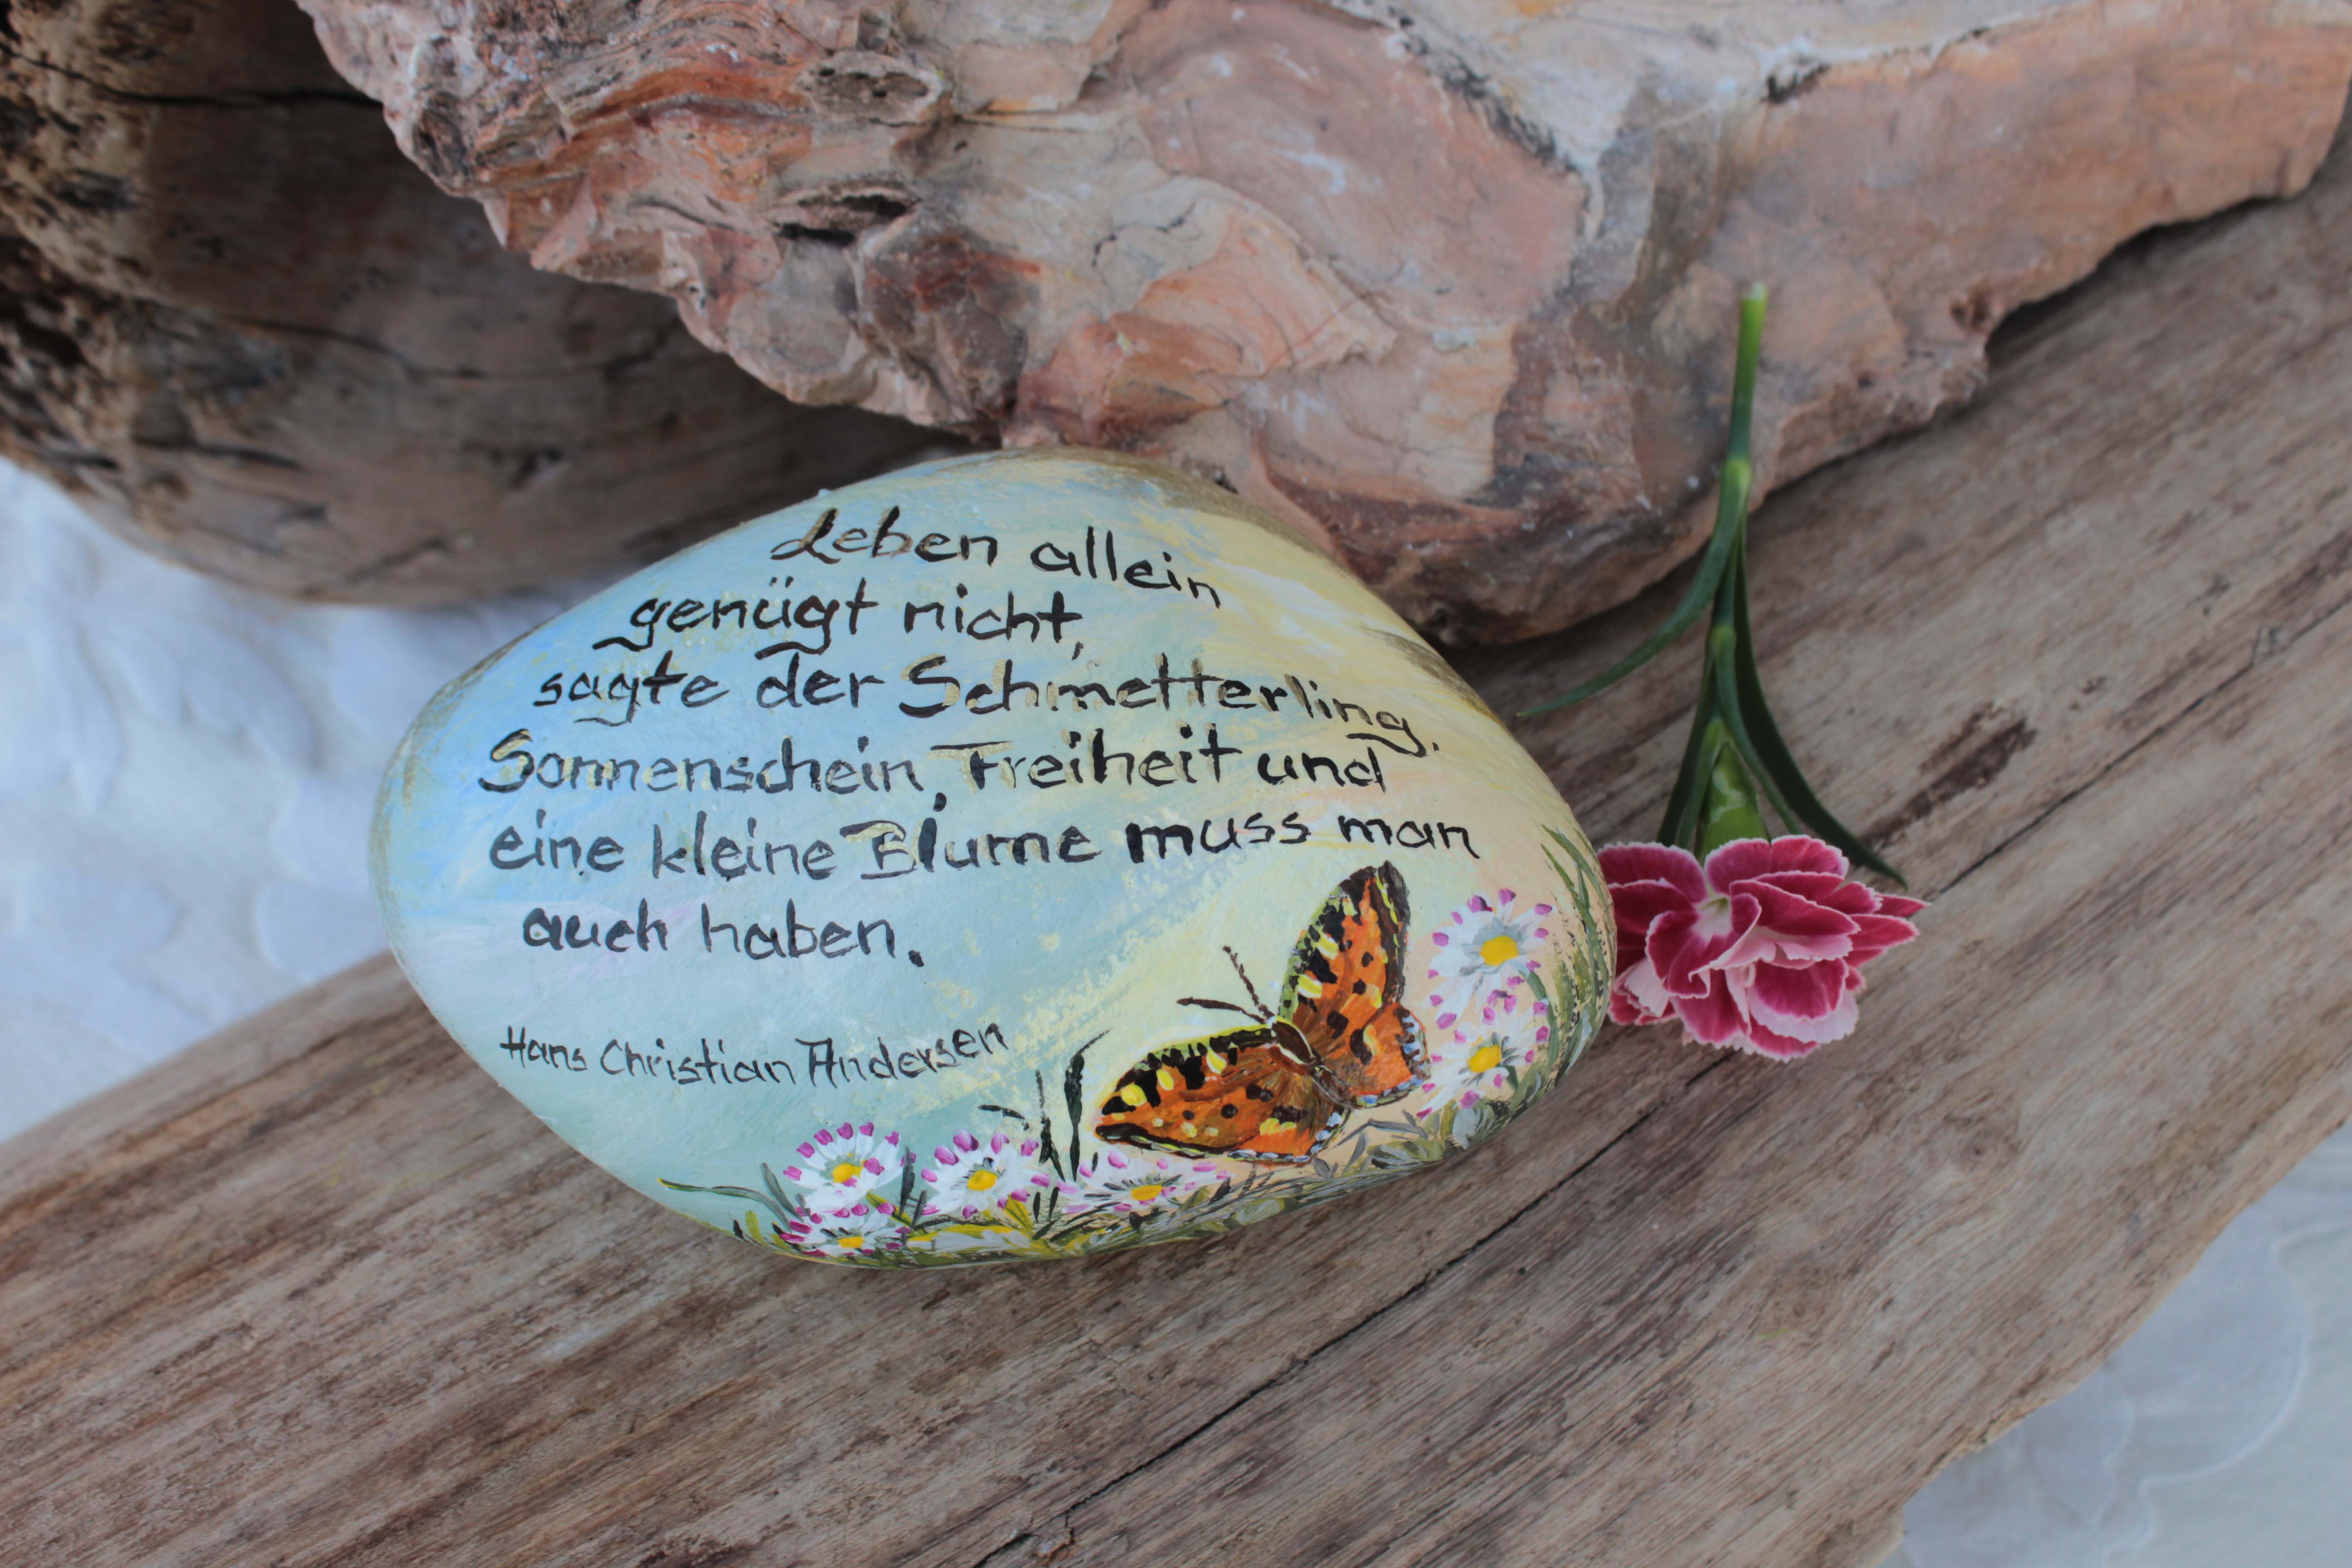 Leben allein
genügt nicht,
sagte der Schmetterling,
Sonnenschein, Freiheit und
eine kleine Blume muss man
auch haben.
Hans Christian Andersen